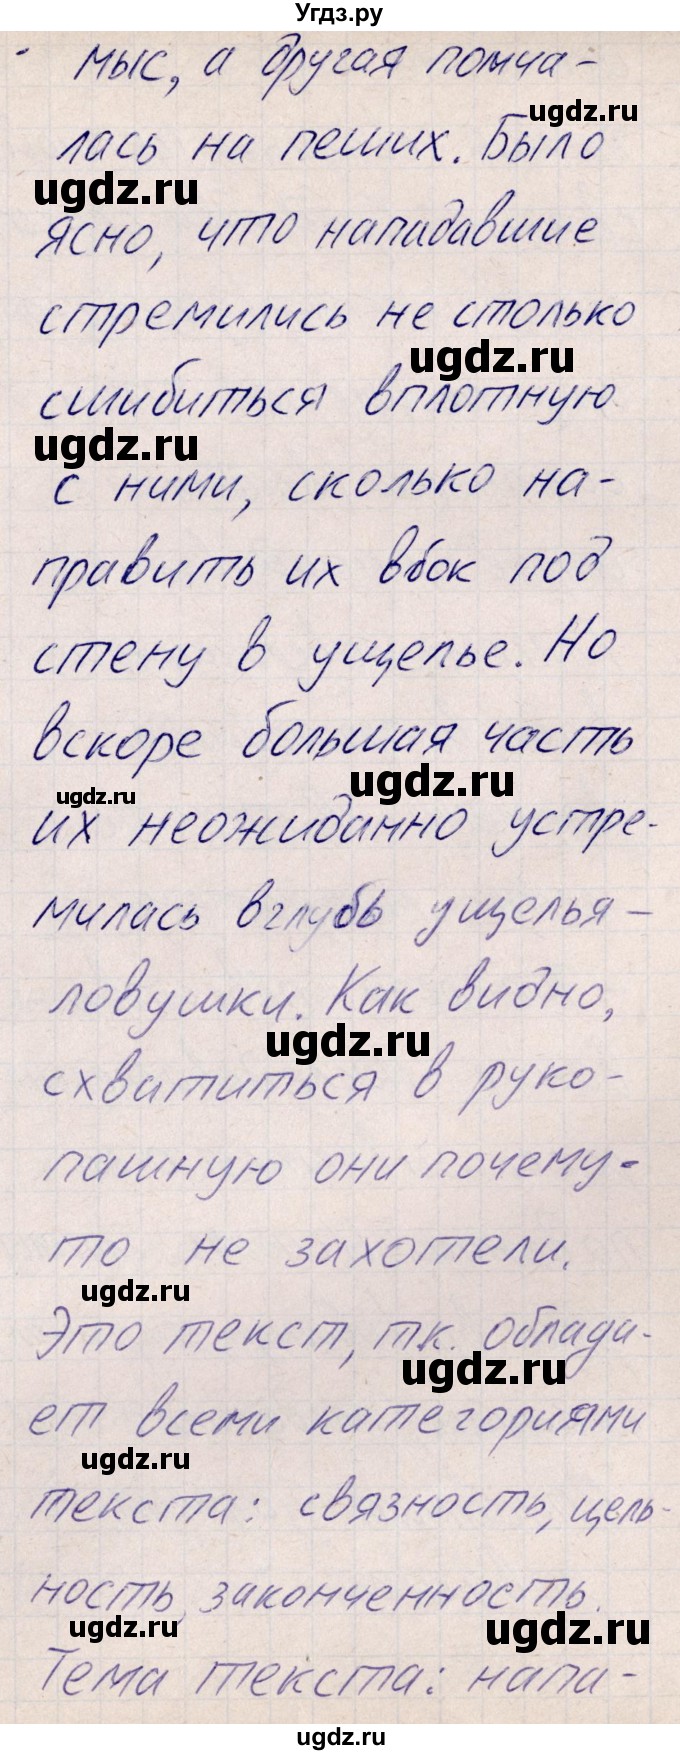 Угдз.ру
мыс, а другая помча-
ugdz.ru
лась на пеших. Было
ugdz.ru
ясно, что нападавшие
стремились не столько
ugdz.ru
сшибиться вплотную
ugdz.ru
с ними, сколько на-
править их вбок под
стену в ущелье. Но
вскоре большая часть
ugdz.ru
ugdz.ru
их неожиданно устре-
милась вглубь ущелья-
ловушки. Как видно,
ugdz.ru
схватиться в руко-
пашную они почему-
то не захотели.
ugdz.ru
Это текст, т.к. облада-
ugdz.ru
ет всеми категориями
ugdz.ru
текста: связность, цель-
ность, законченность.
ugdz.ru
ugdz.ru
Тема текста: напа-
ugdz.ru